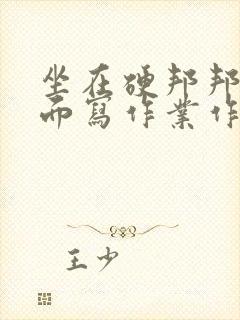 坐在硬邦邦
而寫作業作
王少